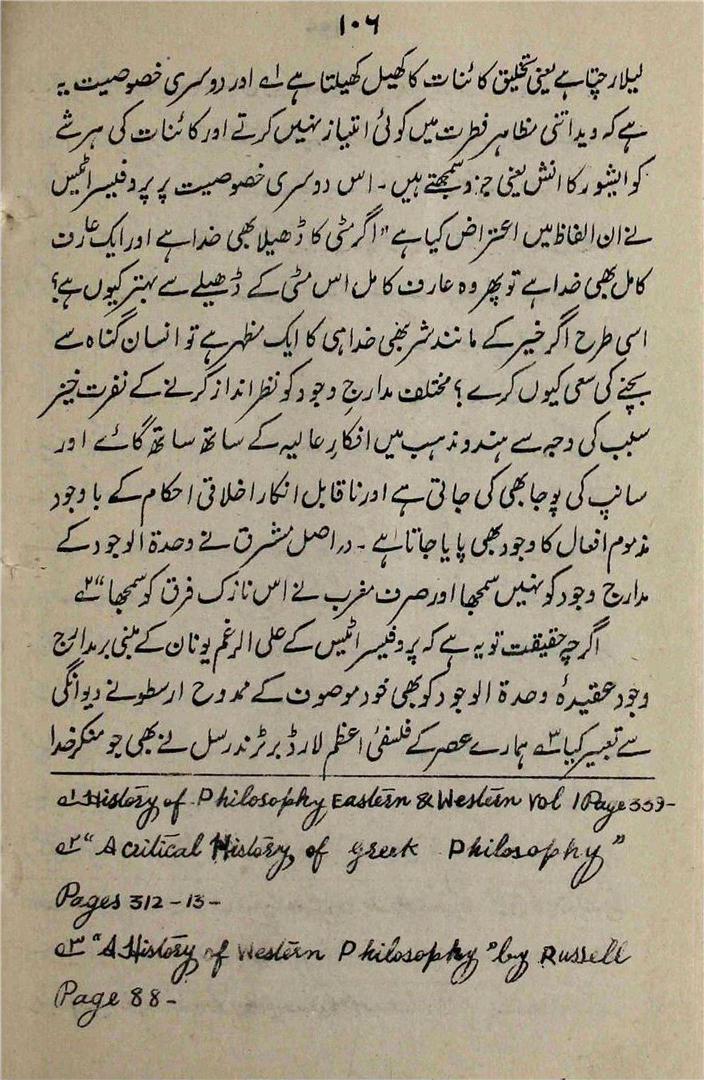 ۱۰۶
لیلا رچتا ہے یعنی تخلیق کائنات کا کھیل کھیلتا ہے ۱ے اور دوسری خصوصیت یہ
ہے کہ ویدانتی مظاہر فطرت میں کوئی امتیاز نہیں کرتے اور کائنات کی ہر شے
کو ایشور کا انش یعنی جزو سمجھتے ہیں ۔ اس دوسری خصوصیت پر پروفیسر اسٹیس
نے ان الفاظ میں اعتراض کیا ہے "اگر مٹی کا ڈھیلا بھی خدا ہے اور ایک عارف
کامل بھی خدا ہے تو پھر وہ عارف کامل اس مٹی کے ڈھیلے سے بہتر کیوں ہے؟
اسی طرح اگر خیر کے مانند شر بھی خدا ہی کا ایک مظہر ہے تو انسان گناہ سے
بچنے کی سعی کیوں کرے ؟ مختلف مدارجِ وجود کو نظر انداز کرنے کے نفرت خیز
سبب کی وجہ سے ہندو مذہب میں افکارِ عالیہ کے ساتھ ساتھ گائے اور
سانپ کی پوجا بھی کی جاتی ہے اور ناقابل انکار اخلاقی احکام کے باوجود
مذموم افعال کا وجود بھی پایا جاتا ہے ۔ دراصل مشرق نے وحدۃ الوجود کے
مدارج وجود کو نہیں سمجھا اور صرف مغرب نے اس نازک فرق کو سمجھا" ۲ے
اگرچہ حقیقت تو یہ ہے کہ پروفیسر اسٹیس کے علی الرغم یونان کے مبنی بر مدارج
وجود عقیدۂ وحدۃ الوجود کو بھی خود موصوف کے ممدوح ارسطو نے دیوانگی
سے تعبیر کیا ۳ے ہمارے عصر کے فلسفیٔ اعظم لارڈ برٹرنڈ رسل نے بھی جو منکر خدا
۱ے History of Philosophy Eastern & Western Vol 1 Page 339-
۲ے "A critical History of Greek Philosophy"
Pages 312-13-
۳ے "A History of Western Philosophy" by Russell
Page 88-